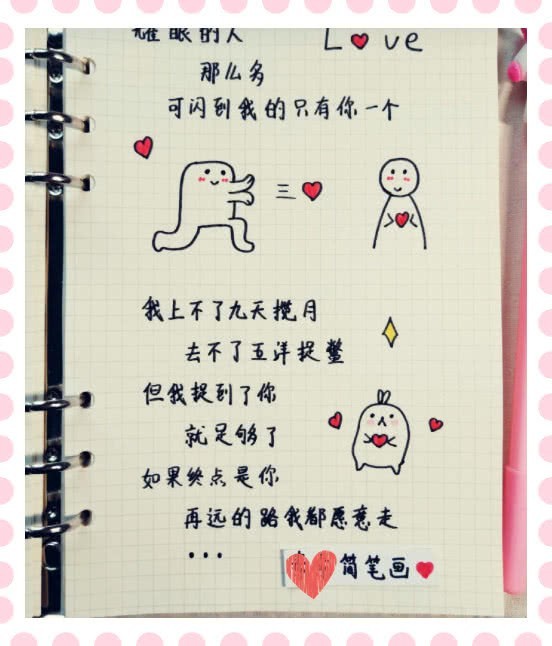 耀眼的人
Love
那么多
可闪到我的只有你一个
我上不了九天揽月
去不了五洋捉鳖
但我捉到了你
就足够了
如果终点是你
再远的路我都愿意走
...
简笔画